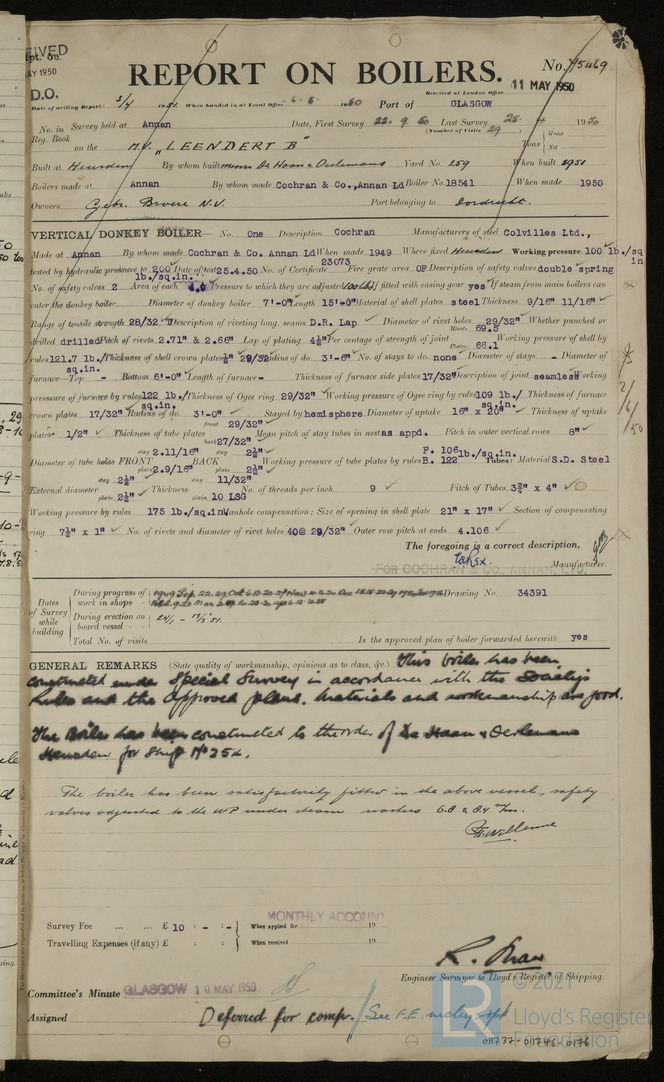 MAY 1950
D.O.
REPORT ON BOILERS.
No. 75469
Received at London Office
11 MAY 1950
Date of writing Report When handed in at Local Office 6.5. 1950 Port of GLASGOW
No. in Survey held at Annan Date, First Survey 22.9. Last Survey 25 4 1950
Reg. Book (Number of Visits 29)
on the M.V. "LEENDERT B" Tons Gross
Net
Built at Heusden By whom built Messrs De Haan & Oerlemans Yard No. 259 When built 1951
Boilers made at Annan By whom made Cochran & Co., Annan Ld Boiler No. 18541 When made 1950
Owners Gebr. Broere N.V. Port belonging to Dordrecht.
VERTICAL DONKEY BOILER— No. One Description Cochran Manufacturers of steel Colvilles Ltd.,
Made at Annan By whom made Cochran & Co. Annan Ld When made 1949 Where fixed Heusden Working pressure 100 lb./sq in
tested by hydraulic pressure to 200 lb./sq.in. Date of test 25.4.50 No. of Certificate 23073 Fire grate area OF Description of safety valves double spring
No. of safety valves 2 Area of each 4.0 Pressure to which they are adjusted fitted with easing gear yes If steam from main boilers can
enter the donkey boiler Diameter of donkey boiler 7'-0" Length 15'-0" Material of shell plates steel Thickness 9/16" 11/16"
Range of tensile strength 28/32 Description of riveting long. seams D.R. Lap Diameter of rivet holes 29/32" Whether punched or
drilled drilled Pitch of rivets 2.71" & 2.66" Lap of plating 4¼" Per centage of strength of joint Rivets 69.5 Plates 66.1 Working pressure of shell by
rules 121.7 lb./sq.in. Thickness of shell crown plates 29/32 Radius of do. 3'-6" No. of stays to do. none Diameter of stays - Diameter of
furnace—Top - Bottom 6'-0" Length of furnace - Thickness of furnace side plates 17/32" Description of joint seamless Working
pressure of furnace by rules 122 lb./sq.in. Thickness of Ogee ring 29/32" Working pressure of Ogee ring by rules 109 lb./sq.in. Thickness of furnace
crown plates 17/32" Radius of do. 3'-0" Stayed by hemisphere Diameter of uptake 16" x 20" Thickness of uptake
plates 1/2" Thickness of tube plates front 29/32" back 27/32" Mean pitch of stay tubes in nest as appd. Pitch in outer vertical rows 8"
Diameter of tube holes FRONT stay 2.11/16" plain 2.9/16" BACK stay 2½" plain 2½" Working pressure of tube plates by rules F. 106 B. 122 lb./sq.in. Tubes: Material S.D. Steel
External diameter stay 2½" plain 2½" Thickness stay 11/32" plain 10 LSG No. of threads per inch 9 Pitch of Tubes 3¾" x 4"
Working pressure by rules 175 lb./sq.in. Manhole compensation: Size of opening in shell plate 21" x 17" Section of compensating
ring 7½" x 1" No. of rivets and diameter of rivet holes 40@ 29/32" Outer row pitch at ends 4.106
The foregoing is a correct description,
FOR COCHRAN & CO., ANNAN, LTD. Manufacturer.
Dates of Survey while building
During progress of work in shops - Drawing No. 34391
During erection on board vessel -
Total No. of visits Is the approved plan of boiler forwarded herewith yes
GENERAL REMARKS (State quality of workmanship, opinions as to class, &c.) This boiler has been
constructed under Special Survey in accordance with the Society's
Rules and the approved plans. Materials and workmanship are good.
The Boiler has been constructed to the order of De Haan & Oerlemans
Heusden for Ship No 254.
The boiler has been satisfactorily fitted in the above vessel, safety
valves adjusted to the WP under steam washers 6.8 & 8.4 m/m.
Survey Fee ... ... £ 10 : - : - When applied for 19
MONTHLY ACCOUNT
Travelling Expenses (if any) £ : : When received 19
Engineer Surveyor to Lloyd's Register of Shipping.
Committee's Minute GLASGOW 10 MAY 1950
Assigned Deferred for comp. See F.E. mchy. rpt
© 2021
Lloyd's Register
Foundation
011737-011746-0176